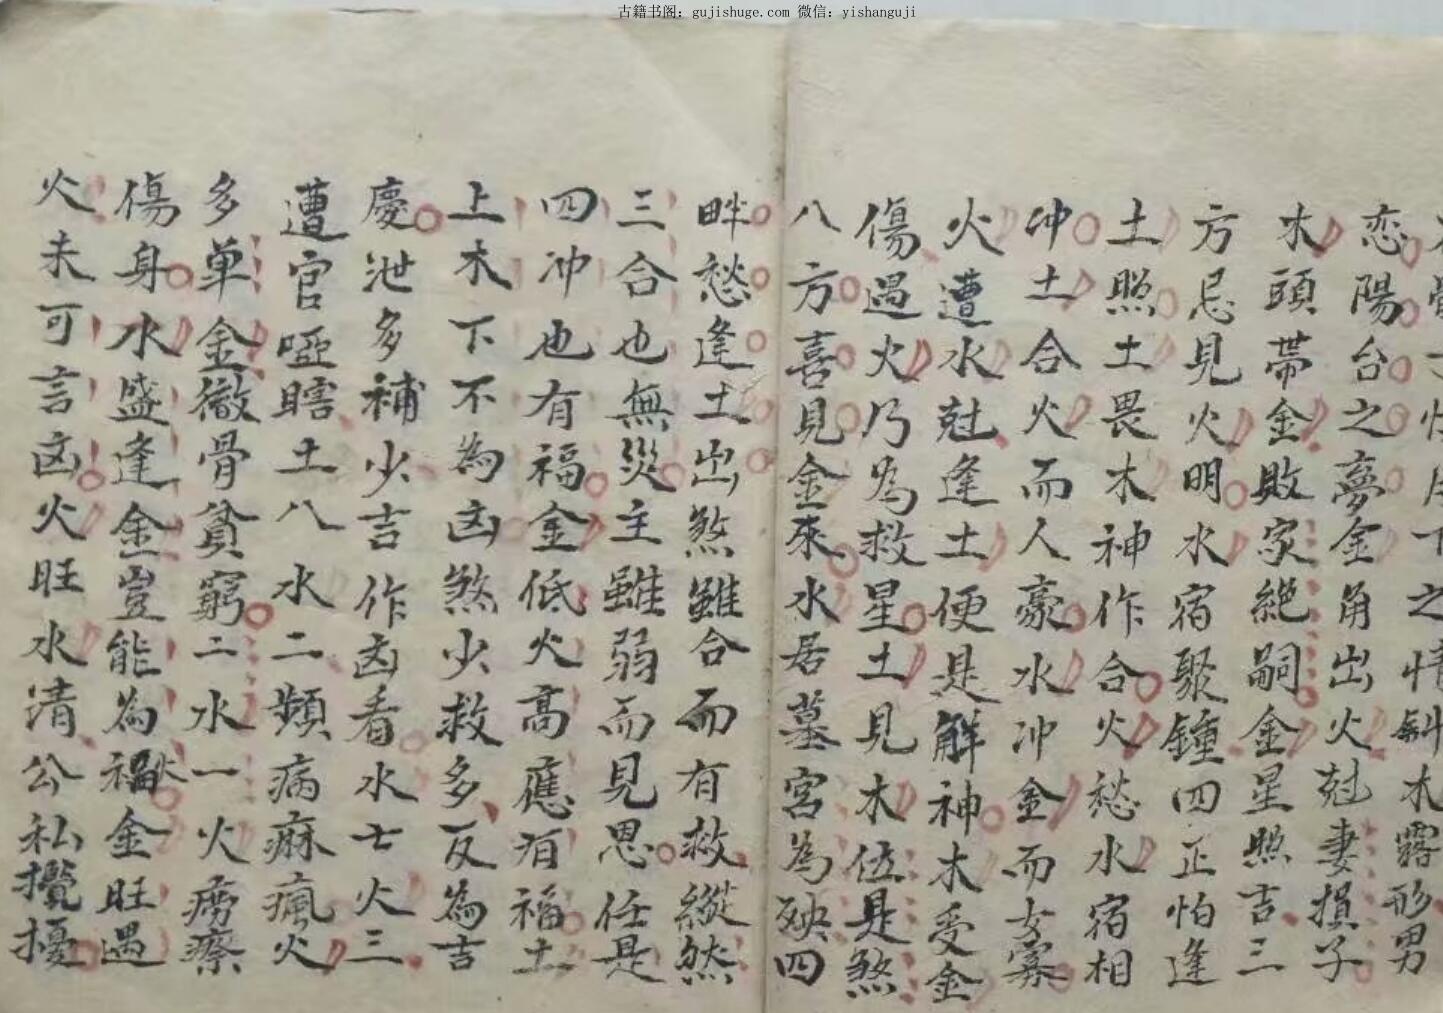 古籍书阁：gujishuge.com 微信：yishanguji
之情斜木露形男
恋陽台之夢金角出火尅妻損子
木頭帯金敗家絕嗣金星照吉三
方忌見火明水宿聚鍾四正怕逢
土照土畏木神作合火愁水宿相
冲土合火而人豪水冲金而女寡
火遭水尅逢土便是解神木受金
傷過火乃為救星土見木位是煞
八方喜見金來水居墓宮為殃四
畔愁逢土出煞雖合而有救縱然
三合也無災主雖弱而見恩任是
四冲也有福金低火高應有福土
上木下不為凶煞少救多反為吉
慶泄多補少吉作凶看水士火三
遭官啞瞎土八水二頻病麻瘋火
多單金徹骨貧窮二水一火癆瘵
傷身水盛逢金豈能為福水金旺遇
火未可言凶火旺水清公私攪擾